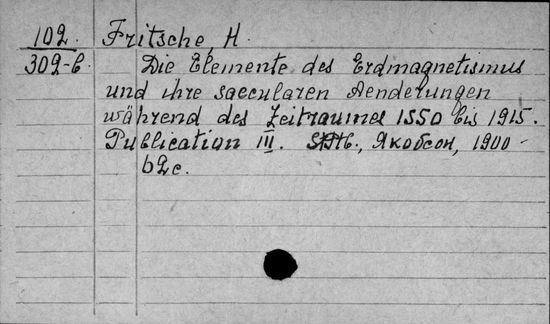 102. Fritsche, H.
302-b. Die Elemente des Erdmagnetismus
und ihre saecularen Aenderungen
während des Zeitraumes 1550 bis 1915.
Publication III. SPtb., Якобсон, 1900 -
62c.